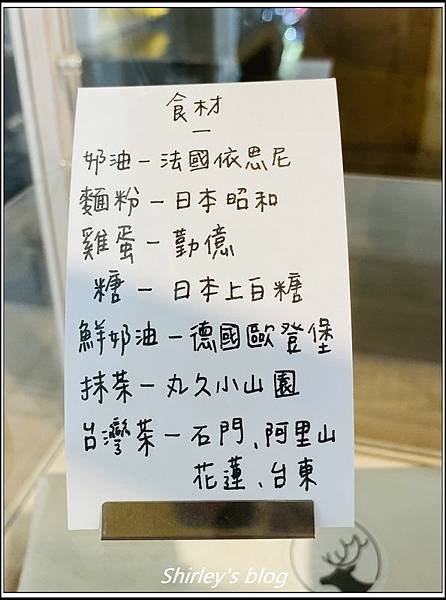 食材
—
奶油 — 法國依思尼
麵粉 — 日本昭和
雞蛋 — 勤億
糖 — 日本上白糖
鮮奶油 — 德國歐登堡
抹茶 — 丸久小山園
台灣茶 — 石門、阿里山
花蓮、台東
Shirley's blog